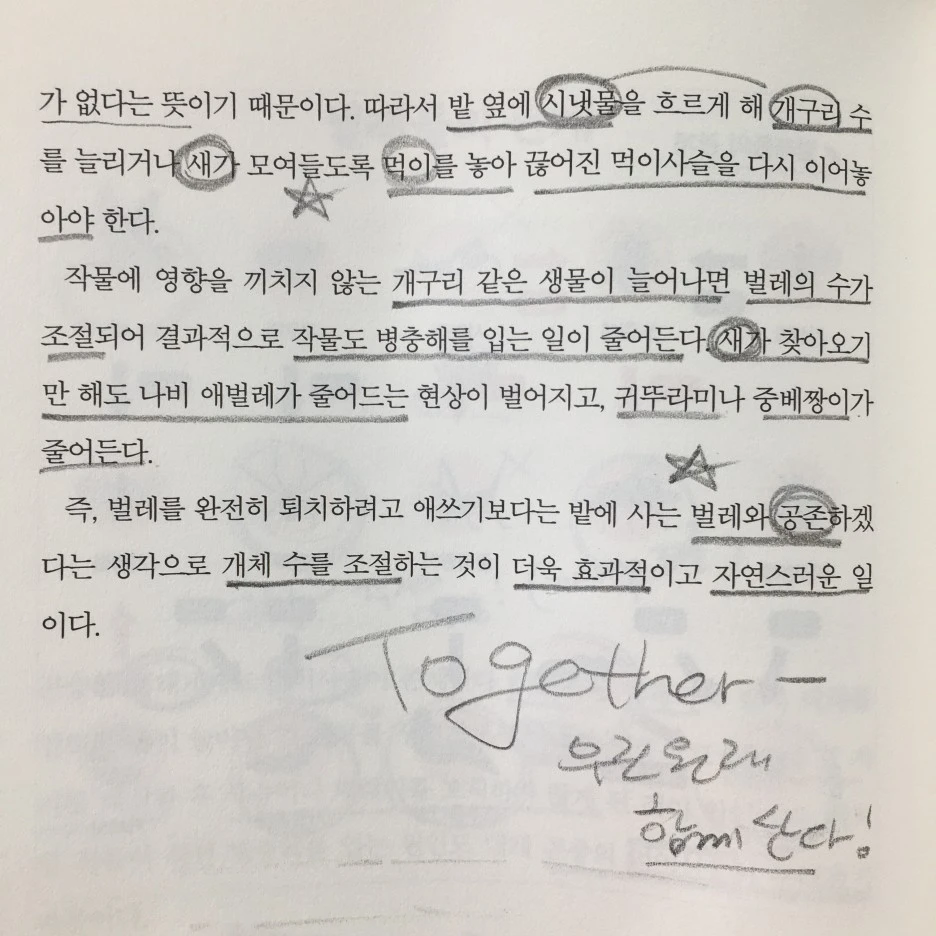 가 없다는 뜻이기 때문이다. 따라서 밭 옆에 시냇물을 흐르게 해 개구리 수
를 늘리거나 새가 모여들도록 먹이를 놓아 끊어진 먹이사슬을 다시 이어놓
아야 한다.
작물에 영향을 끼치지 않는 개구리 같은 생물이 늘어나면 벌레의 수가
조절되어 결과적으로 작물도 병충해를 입는 일이 줄어든다. 새가 찾아오기
만 해도 나비 애벌레가 줄어드는 현상이 벌어지고, 귀뚜라미나 중베짱이가
줄어든다.
즉, 벌레를 완전히 퇴치하려고 애쓰기보다는 밭에 사는 벌레와 공존하겠
다는 생각으로 개체 수를 조절하는 것이 더욱 효과적이고 자연스러운 일
이다.
Together -
우린 원래
함께 산다!